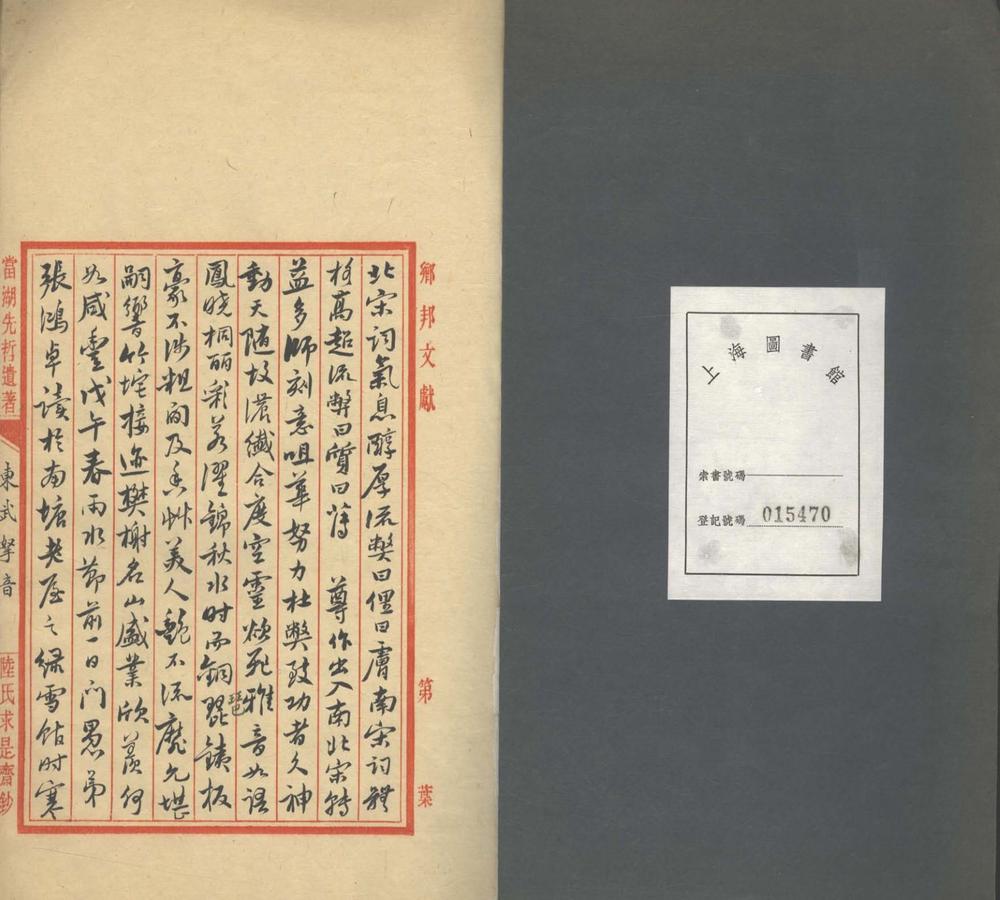 上海圖書館
索書號碼
登記號碼 015470
鄉邦文獻 第 葉
北宋詞氣息醇厚流弊曰俚曰膚南宋詞體
格高超流弊曰質曰薄 尊作出入南北宋轉
益多師刻意咀華努力杜弊致功者久神
動天隨故濃纖合度空靈欲死雅音如語
鳳曉桐麗彩若濯錦秋水時而銅琵琶鐵板
豪不涉粗間及香艸美人艷不流靡允堪
嗣響竹垞接迹樊榭名山盛業欣羨何
如咸豐戊午春雨水節前一日門愚弟
張鴻卓讀於南塘老屋之綠雪館時寒
當湖先哲遺著 東武拏音 陸氏求是齋鈔